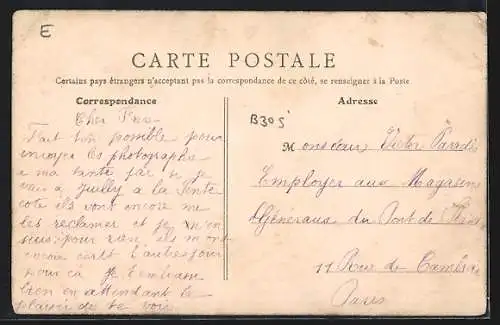 E
CARTE POSTALE
Certains pays étrangers n'acceptant pas la correspondance de ce côté, se renseigner à la Poste
Correspondance
Adresse
B305
Cher Frere
Fait ton possible pour
envoyer les photographe
a ma tante car si je
vais a Juilly a la Pente
cote ils vont encore me
les reclamer et je n'en
suis pour rien ils m'ont
encore ecrit l'autre jour
pour ça Je t'embrasse
bien en attendant le
plaisir de te voir
Monsieur Victor Paradis
Employer aux Magasins
Généraux du Pont de
11 Rue de Cambrai
Paris